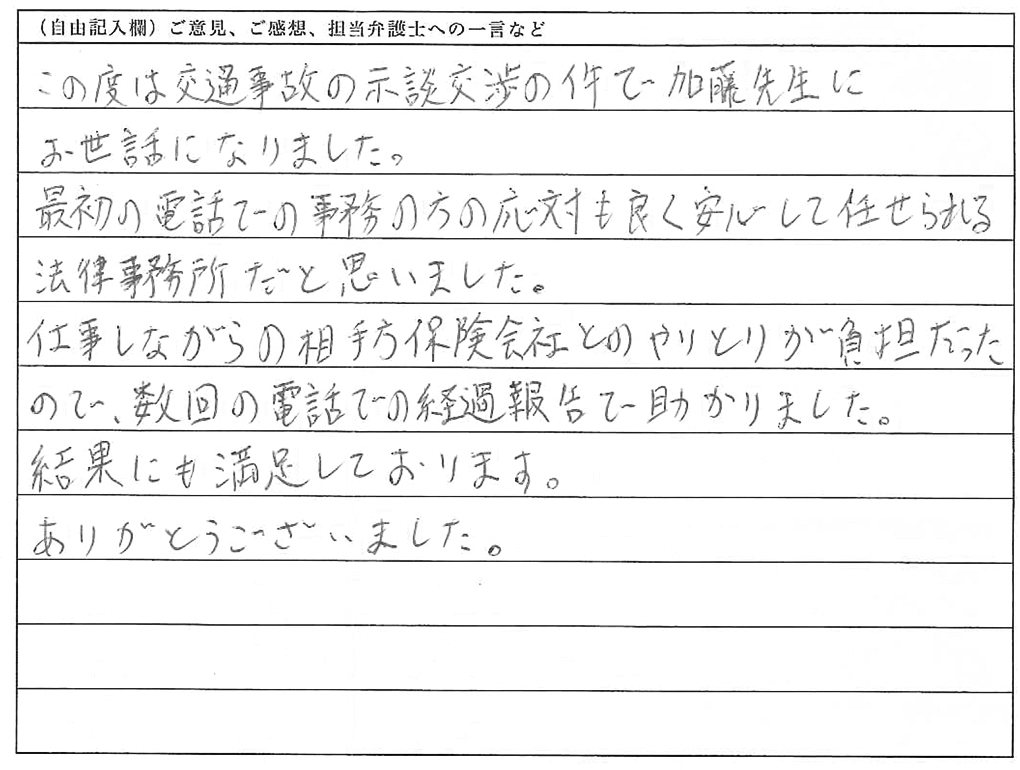 （自由記入欄）ご意見、ご感想、担当弁護士への一言など
この度は交通事故の示談交渉の件で加藤先生に
お世話になりました。
最初の電話での事務の方の応対も良く安心して任せられる
法律事務所だと思いました。
仕事しながらの相手方保険会社とのやりとりが負担だった
ので、数回の電話での経過報告で助かりました。
結果にも満足しております。
ありがとうございました。